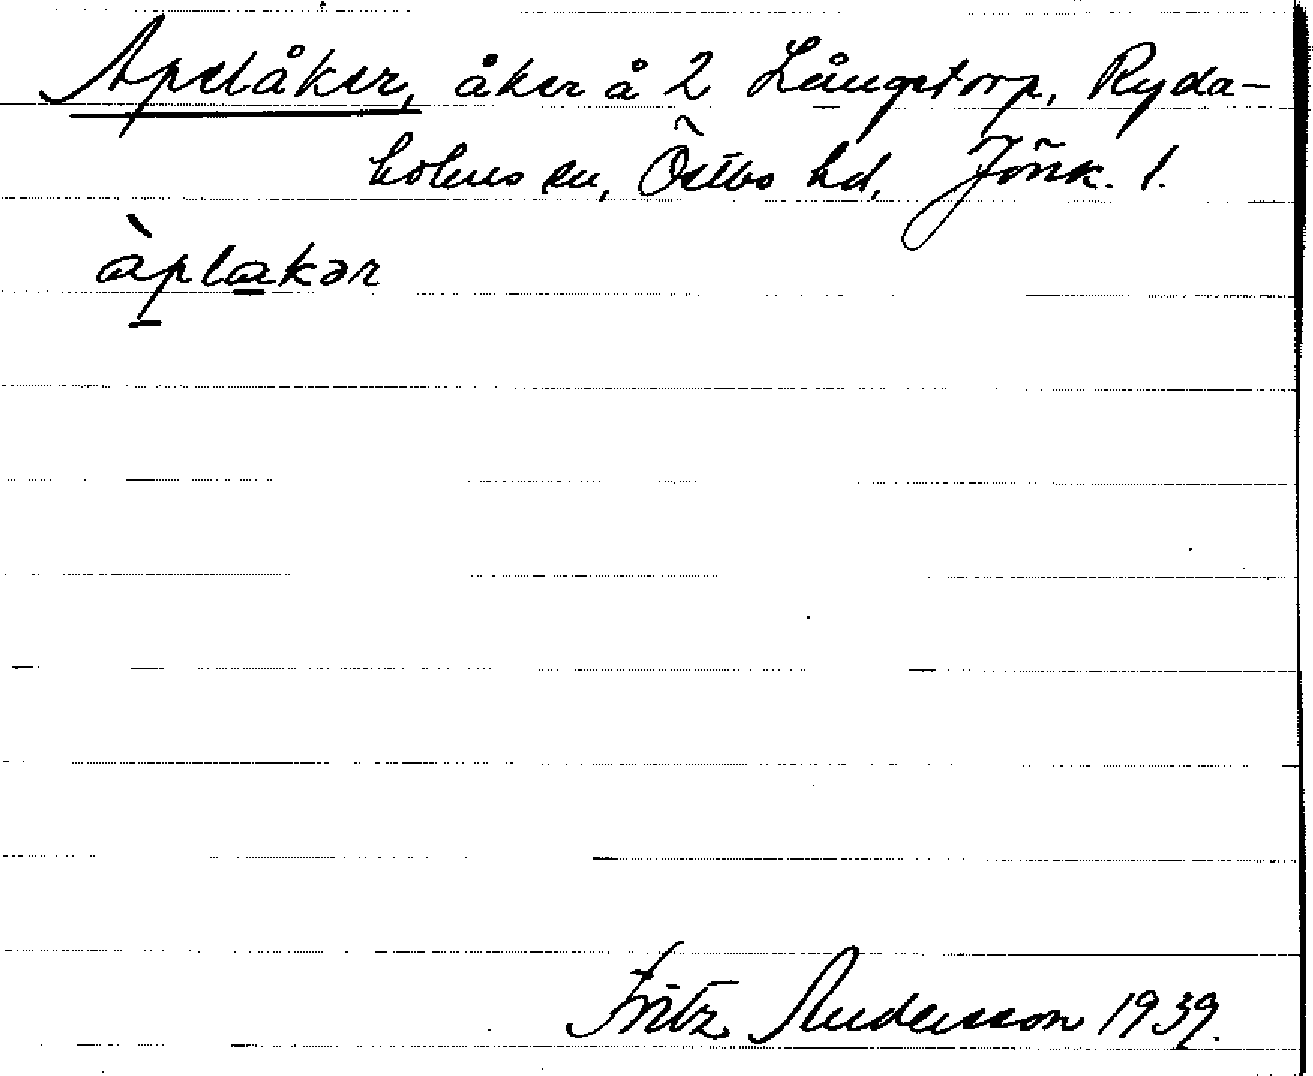 Apelåker, åker å 2 Långstorp, Ryda-
holms sn, Östbo hd, Jönk. l.
àplakər
Fritz Andersson 1939.